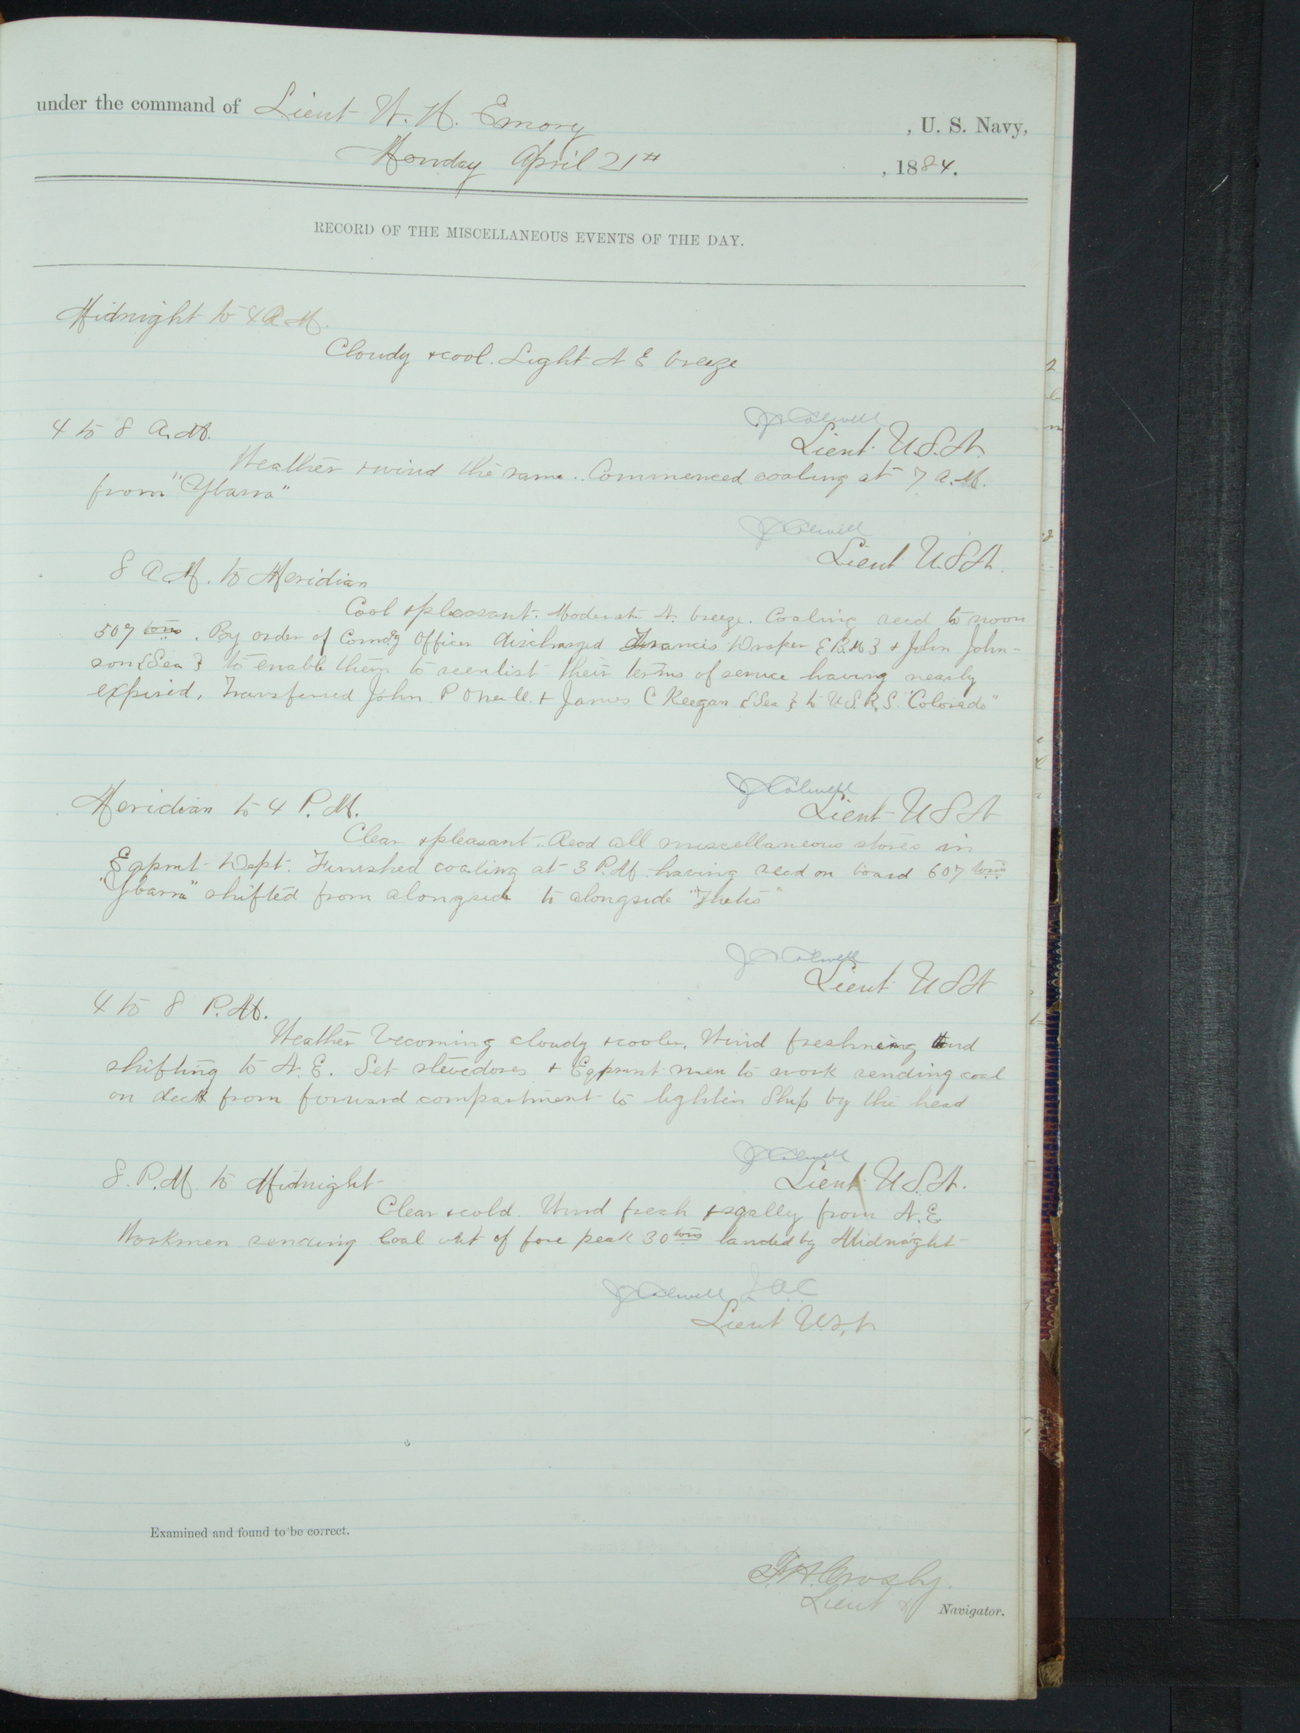 under the command of Lieut W. H. Emory , U. S. Navy,
Monday April 21st , 1884.
RECORD OF THE MISCELLANEOUS EVENTS OF THE DAY.
Midnight to 4 A M.
Cloudy & cool. Light N E breeze
J C Colwell
Lieut. U.S.N.
4 to 8 A. M.
Weather & wind the same. Commenced coaling at 7 A. M.
from "Ybarra"
J C Colwell
Lieut U.S.N.
8 A M. to Meridian
Cool & pleasant. Moderate N. breeze. Coaling recd to noon
507 tons. By order of Comdg Officer discharged Francis Draper {B.M.} & John John-
son {Sea} to enable them to reenlist their terms of service having nearly
expired. Transferred John P O'Neile & James C Keegan {Sea} to U.S.R.S. "Colorado"
J C Colwell
Lieut U S N
Meridian to 4 P. M.
Clear & pleasant. Recd all miscellaneous stores in
Eqpmt Dept. Finished coaling at 3 P.M. having recd on board 607 tons
"Ybarra" shifted from alongside to alongside "Thetis"
J C Colwell
Lieut U S N
4 to 8 P. M.
Weather becoming cloudy & cooler. Wind freshening and
shifting to N. E. Set stevedores & Eqpmnt men to work sending coal
on deck from forward compartment to lighten Ship by the head
J C Colwell
Lieut U.S.N.
8. P. M. to Midnight
Clear & cold. Wind fresh & squally from N. E
Workmen sending Coal out of fore peak 30 tons landed by Midnight
J C Colwell
Lieut U.S.N
Examined and found to be correct.
F H Crosby.
Lieut & Navigator.